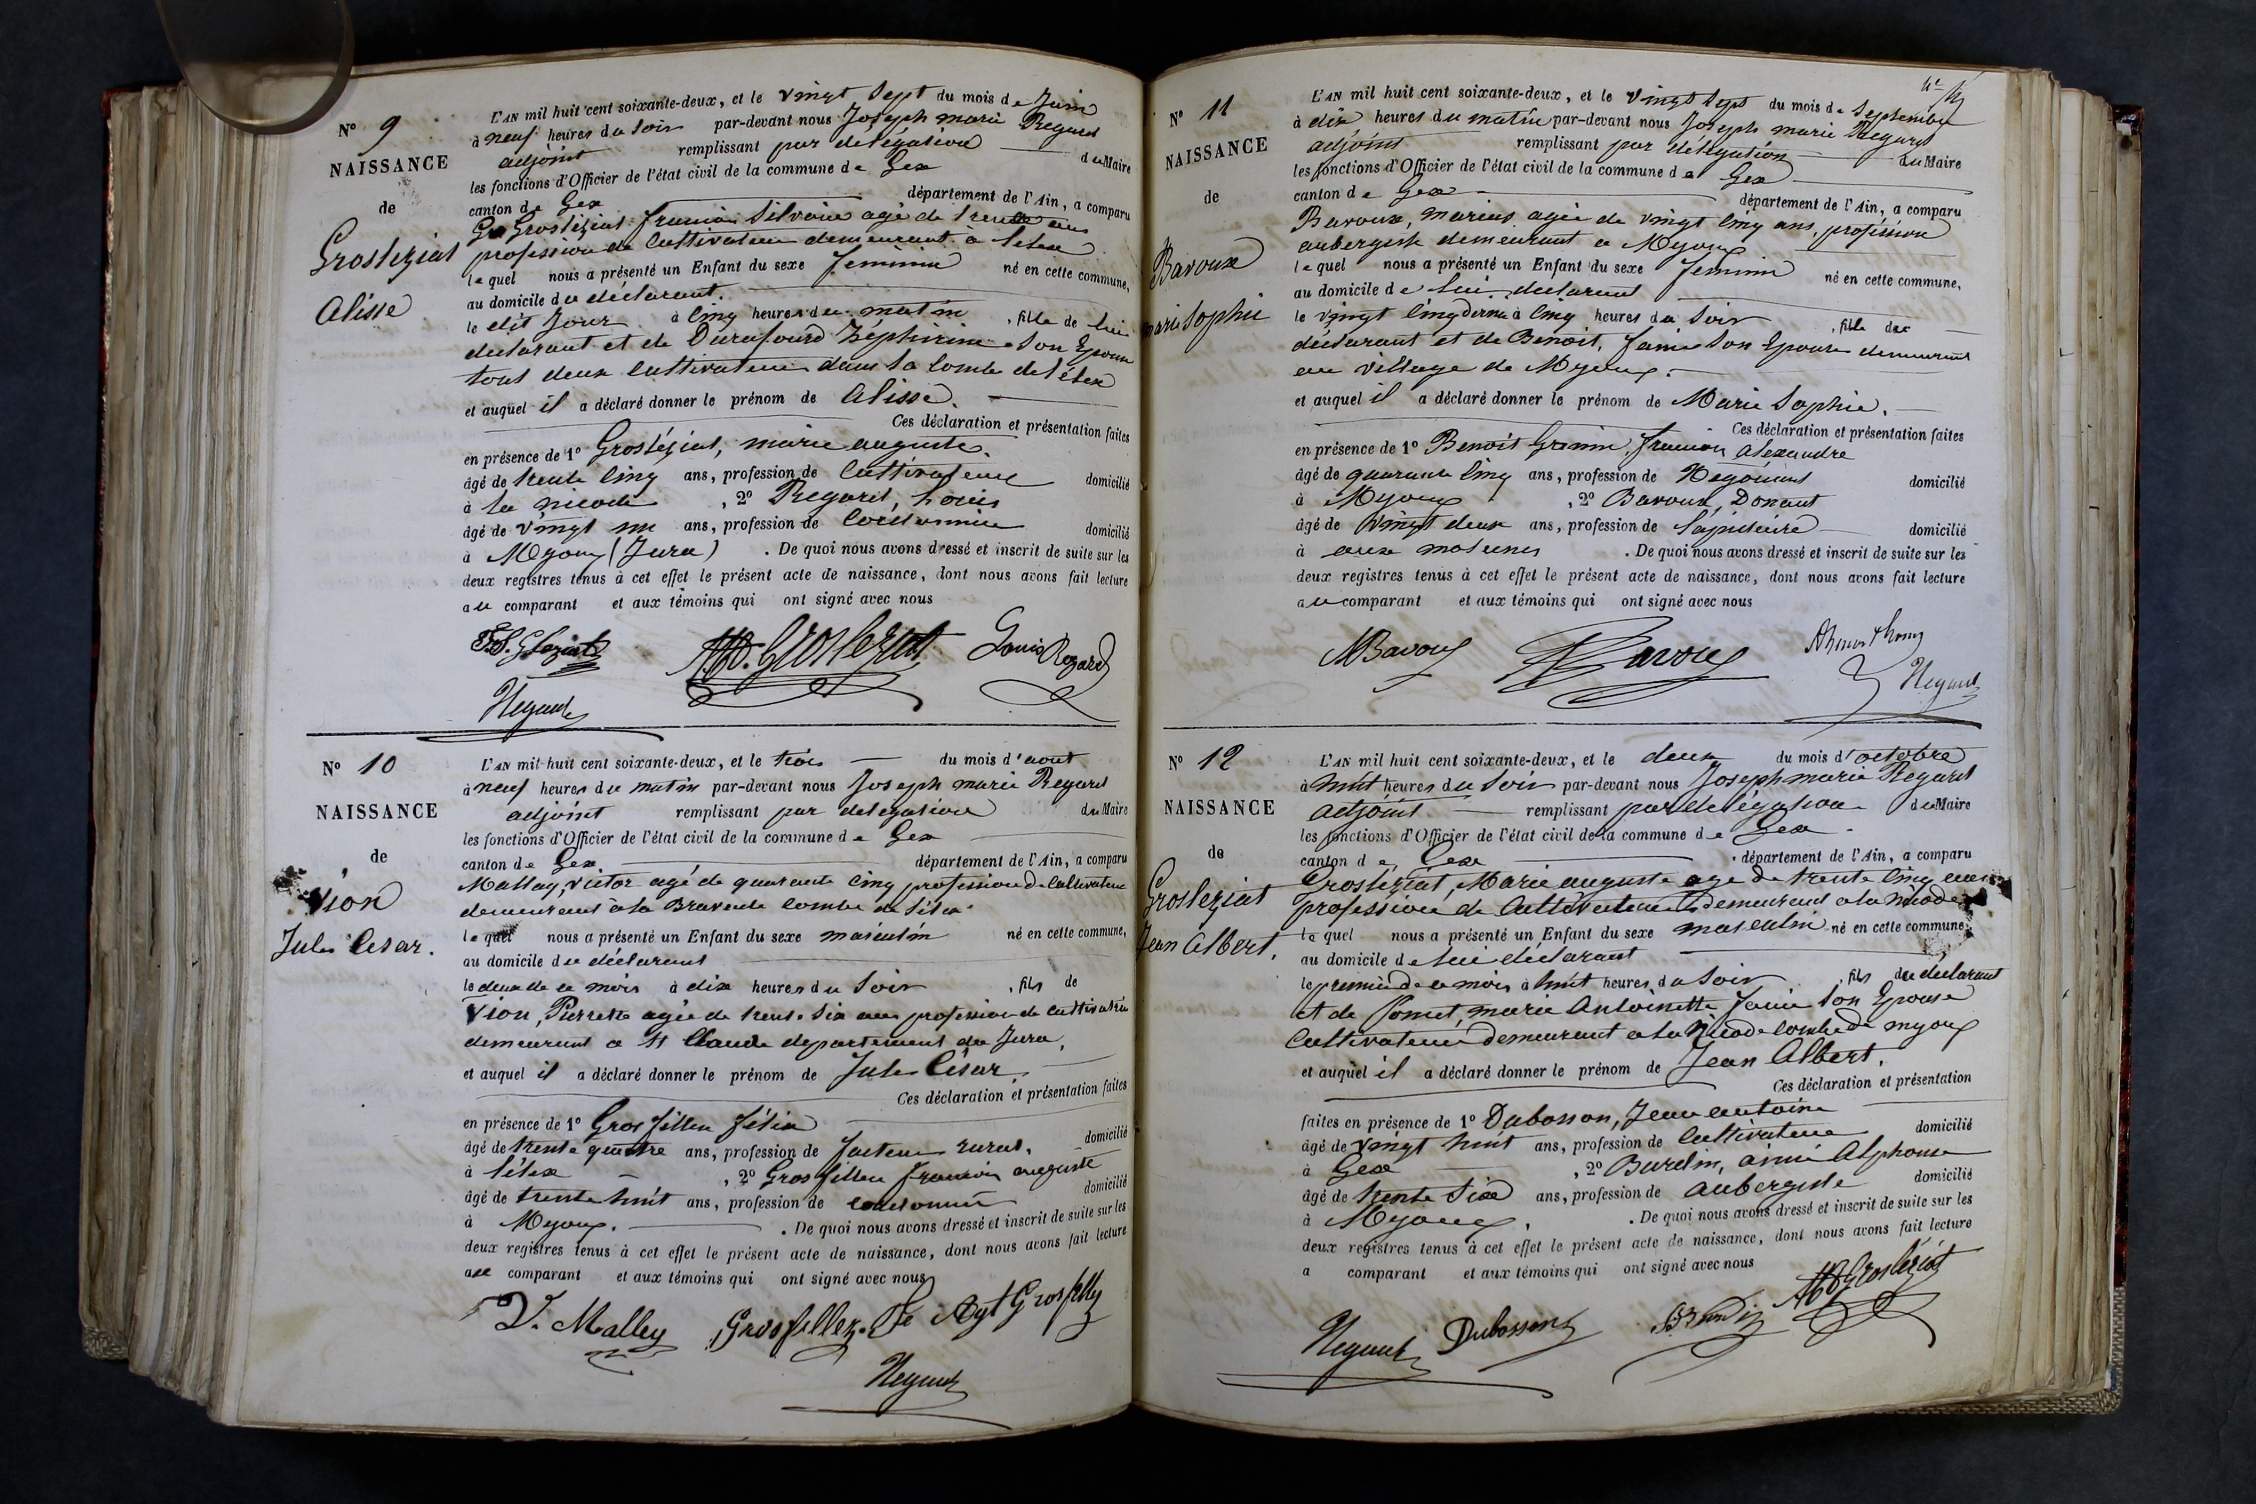 N° 9
NAISSANCE
de
Grosleziat
Alisse
L'AN mil huit cent soixante-deux, et le vingt sept du mois de Juin
à neuf heures du soir par-devant nous Joseph marie Regard
adjoint remplissant par délégation du Maire
les fonctions d'Officier de l'état civil de la commune de Gex
canton de Gex département de l'Ain, a comparu
Grosléziat françois Silvain agé de trente ans
profession de Cultivateur demeurant à Lélex
lequel nous a présenté un Enfant du sexe feminin né en cette commune,
au domicile du déclarant.
le dit Jour à Cinq heures du matin, fille de lui
déclarant et de Durafourd Zéphirine Son Epouse
tout deux Cultivateur dans la Combe de lélex
et auquel il a déclaré donner le prénom de Alisse.
Ces déclaration et présentation faites
en présence de 1° Grosléziat, marie auguste.
âgé de trente Cinq ans, profession de Cultivateur domicilié
à la nicode, 2° Regard, Louis
âgé de vingt un ans, profession de domicilié
à Mijoux (Jura). De quoi nous avons dressé et inscrit de suite sur les
deux registres tenus à cet effet le présent acte de naissance, dont nous avons fait lecture
au comparant et aux témoins qui ont signé avec nous
F.S. Gleziat MA. Grosleziat Louis Regard
Regard
N° 10
NAISSANCE
de
Vion
Jules Cesar.
L'AN mil huit cent soixante-deux, et le trois du mois d'aout
à neuf heures du matin par-devant nous Joseph marie Regard
adjoint remplissant par delegation du Maire
les fonctions d'Officier de l'état civil de la commune de Gex
canton de Gex département de l'Ain, a comparu
Mallay, Victor agé de quarante Cinq profession de Cultivateur
demeurant à la Bravande Combe de Lélex
lequel nous a présenté un Enfant du sexe masculin né en cette commune,
au domicile du déclarant
le deux de ce mois à dix heures du Soir, fils de
Vion, Pierrette agée de trente Six ans profession de Cultivatrice
demeurant a St Claude departement du Jura,
et auquel il a déclaré donner le prénom de Jules César.
Ces déclaration et présentation faites
en présence de 1° Grosfillex félix
âgé de trente quatre ans, profession de facteur rural, domicilié
à Lélex, 2° Grosfillex françois auguste
âgé de trente huit ans, profession de domicilié
à Mijoux. De quoi nous avons dressé et inscrit de suite sur les
deux registres tenus à cet effet le présent acte de naissance, dont nous avons fait lecture
au comparant et aux témoins qui ont signé avec nous
V. Malley Grosfillex Fe Agt Grosfillex
Regard
N° 11
NAISSANCE
de
Bavoux
Marie Sophie
L'AN mil huit cent soixante-deux, et le vingt Sept du mois de Septembre
à dix heures du matin par-devant nous Joseph marie Regard
adjoint remplissant par délégation du Maire
les fonctions d'Officier de l'état civil de la commune de Gex
canton de Gex département de l'Ain, a comparu
Bavoux, marius agée de vingt Cinq ans, profession
aubergiste demeurant a Mijoux
lequel nous a présenté un Enfant du sexe feminin né en cette commune,
au domicile de lui déclarant
le vingt Cinq dernier à Cinq heures du Soir, fille du
déclarant et de Benoit, fanie Son Epouse demeurant
au village de Mijoux.
et auquel il a déclaré donner le prénom de Marie Sophie.
Ces déclaration et présentation faites
en présence de 1° Benoit françois Alexandre
âgé de quarante Cinq ans, profession de Négociant domicilié
à Mijoux, 2° Bavoux, Donant
âgé de vingt deux ans, profession de Lapidaire domicilié
à aux molunes. De quoi nous avons dressé et inscrit de suite sur les
deux registres tenus à cet effet le présent acte de naissance, dont nous avons fait lecture
au comparant et aux témoins qui ont signé avec nous
MBavoux Bavoux
Regard
N° 12
NAISSANCE
de
Grosleziat
Jean Albert.
L'AN mil huit cent soixante-deux, et le deux du mois d'octobre
à huit heures du Soir par-devant nous Joseph marie Regard
adjoint remplissant par délégation du Maire
les fonctions d'Officier de l'état civil de la commune de Gex
canton de Gex département de l'Ain, a comparu
Grosleziat, Marie auguste age de trente Cinq ans
profession de Cultivateur demeurant a la Nicode
lequel nous a présenté un Enfant du sexe masculin né en cette commune,
au domicile de lui déclarant
le premier de ce mois à huit heures du Soir, fils du déclarant
et de Pomet, marie Antoinette fanie Son Epouse
Cultivateur demeurant a la Nicode Combe de myoux
et auquel il a déclaré donner le prénom de Jean Albert.
Ces déclaration et présentation
faites en présence de 1° Dubosson, Jean antoine
âgé de vingt huit ans, profession de Cultivateur domicilié
à Gex, 2° aimé Alphonse
âgé de trente Six ans, profession de aubergiste domicilié
à Mijoux. De quoi nous avons dressé et inscrit de suite sur les
deux registres tenus à cet effet le présent acte de naissance, dont nous avons fait lecture
a comparant et aux témoins qui ont signé avec nous
Regard Dubosson MAGrosléziat